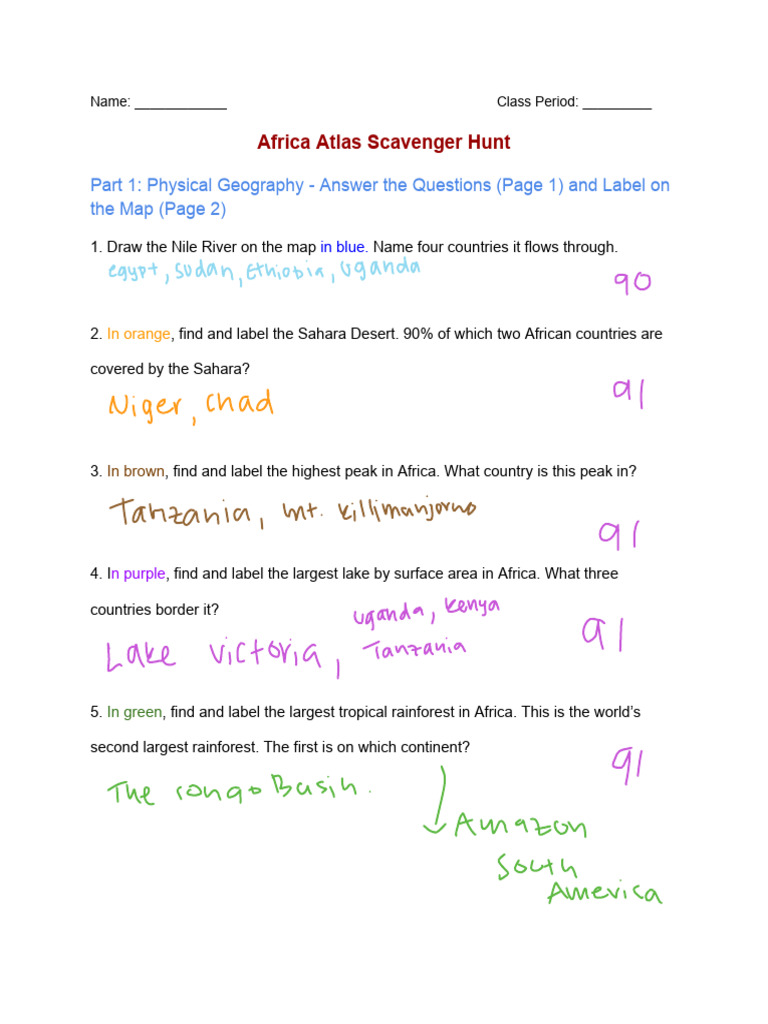 Name: ____________ Class Period: _________
Africa Atlas Scavenger Hunt
Part 1: Physical Geography - Answer the Questions (Page 1) and Label on
the Map (Page 2)
1. Draw the Nile River on the map in blue. Name four countries it flows through.
egypt, sudan, Ethiopia, Uganda
90
2. In orange, find and label the Sahara Desert. 90% of which two African countries are
covered by the Sahara?
Niger, Chad
91
3. In brown, find and label the highest peak in Africa. What country is this peak in?
Tanzania, mt. killimanjorno
91
4. In purple, find and label the largest lake by surface area in Africa. What three
countries border it?
uganda, kenya
Lake victoria, Tanzania
91
5. In green, find and label the largest tropical rainforest in Africa. This is the world's
second largest rainforest. The first is on which continent?
91
The congo Basin.
Amazon
South
America